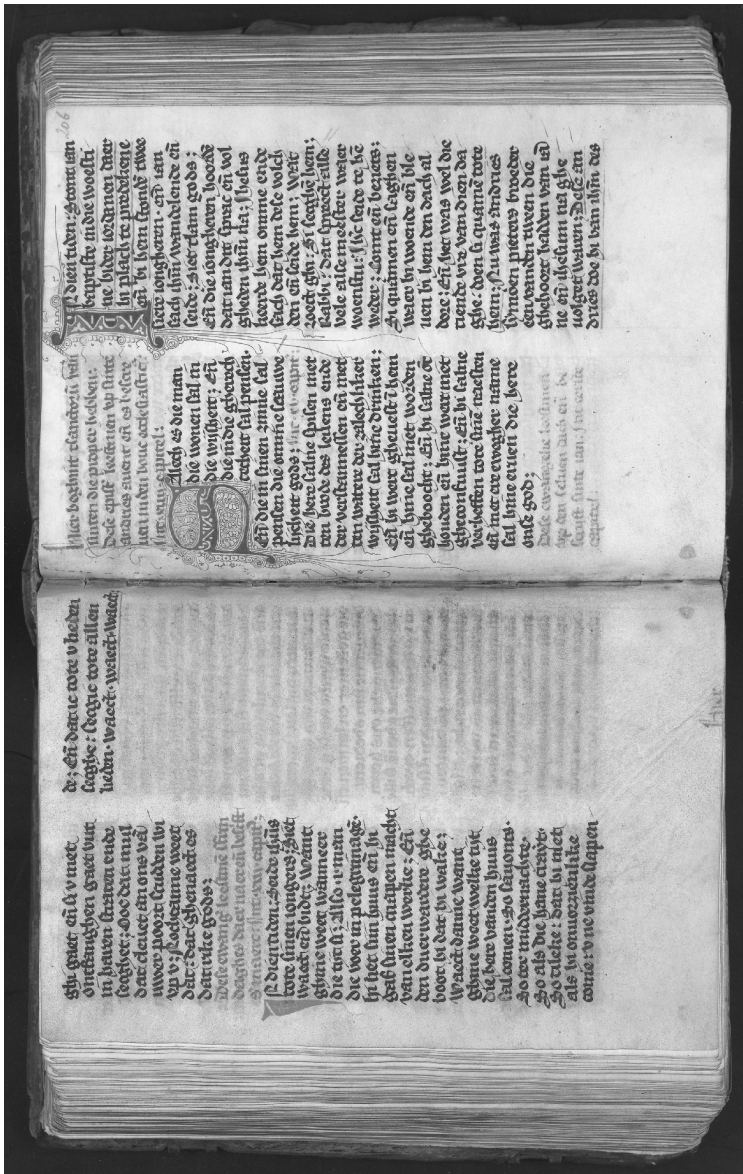 ghi gaet / en̄ si v niet
ontfanghen gaet vut
in haren straten ende
segghet; Ooc dat mul
dat cleuet an ons vā
uwer poort scudden wi
vp v; Nochtanne weet
dat: dat ghenaect es
dat rike gods;
Dese ewanḡ leestmē
daeghes daer naer
JN dien tiden; Seide ihūs
tote sinen iongers; Siet
waect en̄ bidt; Want
ghine weet wanneer
die tijt si; Also .i. man
die voer in pelegrimagē.
hi liet sijn huus en̄ hi
gaf sinen cnapen macht
van elken werke; En̄
den duerwardere ghe
boot hi dat hi wake;
Waect danne want
ghine weet welke tijt
die here vanden huus
sal comen. So tsauonts.
So ter middernachte.
So als die hane crayt.
So tileke: dat hi niet
als hi onuorzienlike
comē: v ne vinde slapen
de; En̄ dat ic tote v lieden
segghe: Segic tote allen
lieden. Waect. Waect. Waect
Hier beghint tsanctorū van
sinten die proper hebben.
Dese epistͤ leestmen vp sinte
andries auent en̄ es bescre
uen in den bouc ecclesiastici.
int .xiiij. capitel:
SAlech es die man
die wonen sal in
die wijsheit; En̄
die in die gherech
techeit sal pensen.
En̄ die in sinen zinne sal
pensen die ommescauwe
lijcheit gods; int .xv. capit̄el:
Die here salne spisen met
den brode des leuens ende
der verstannessen en̄ met
ten watre der zalechliker
wijsheit sal hine drinken;
En̄ hi wert gheuest ī hem
en̄ hine sal niet worden
gheboocht; En̄ hi salne ōt
houden en̄ hine wert niet
ghescōfuust; En̄ hi salne
verheffen tote sinē naesten
en̄ met ere ewegher name
sal hine eruen die here
onse god;
Dese ewangelie leestmen
vp den seluen dach en̄ be
scrijft sinte ian. In eerste
capitel.
206
JN dien tiden; Stont ian
baptiste in die woesti
ne bider iordanen daer
hi plach te predekene
en̄ bi hem stondē twee
siere iongheren. en̄ ian
sach ihūm wandelende en̄
seide; Siet tlam gods;
En̄ die iongheren hoordē
dat ian dat sprac en̄ vol
gheden ihūm na; Ihesus
keerde hem omme ende
sach dat hem dese volch
den en̄ seide hem; Wat
zoect ghi; Si seeghē hem;
Rabbi. dat spreect alse
vele alse meester waer
woenstu; Ihc̄ seide te hē
weder; Comt en̄ besiets;
Si quamen en̄ saghen
waer hi woende en̄ ble
uen bi hem den dach al
dore; En̄ het was wel die
tiende vre van dien da
ghe. doen si quamē tote
hem; Nu was Andries
Symoen pieters broeder
een vanden tween die
ghehoort hadden van iā
ne en̄ ihesum na ghe
uolget waren; Dese An
dries die hi van ihm̄ des